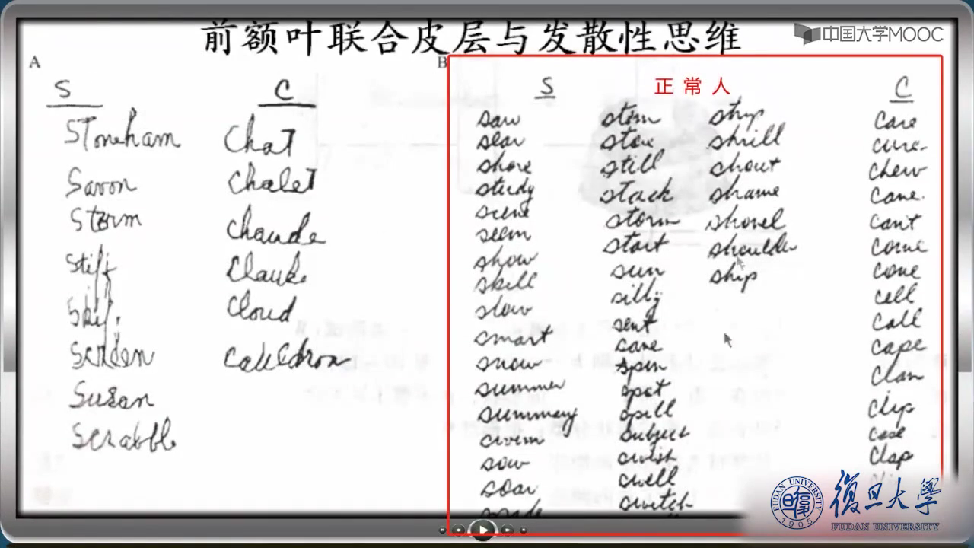 前额叶联合皮层与发散性思维
中国大学MOOC
A
S
C
Stoneham
Savon
Storm
Stiff
Susan
Scrabbl
Chat
Chalet
Chaude
Claude
Cloud
Cauldron
B
正常人
S
saw
sear
shore
study
scene
seem
show
skill
slow
smart
snow
summer
summary
swim
sow
soar
stem
stow
still
stack
storm
start
sun
silly
sent
save
spin
spot
spill
subject
swish
swell
switch
strip
shrill
shout
shame
shovel
shoulder
ship
C
care
cure
chew
cane
can't
come
cone
cell
call
cape
clan
clip
case
clap
复旦大学
FUDAN UNIVERSITY
1905